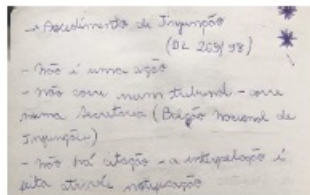 → Procedimento de Injunção
(DL 269/98)
- Não é uma ação
- Não corre num tribunal - corre
numa Secretaria (Balcão Nacional de
Injunções)
- Não há citação - a interpelação é
feita através notificação